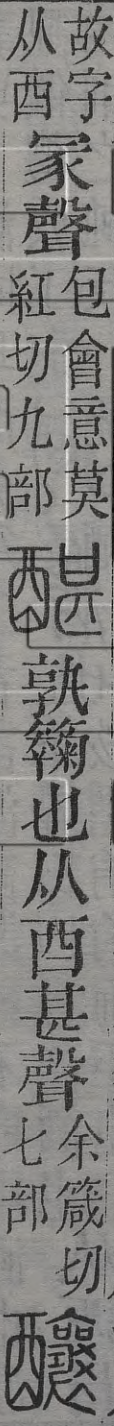 故字
从酉
冡聲
包會意莫
紅切九部
孰也从酉甚聲
余箴切
七部
釀